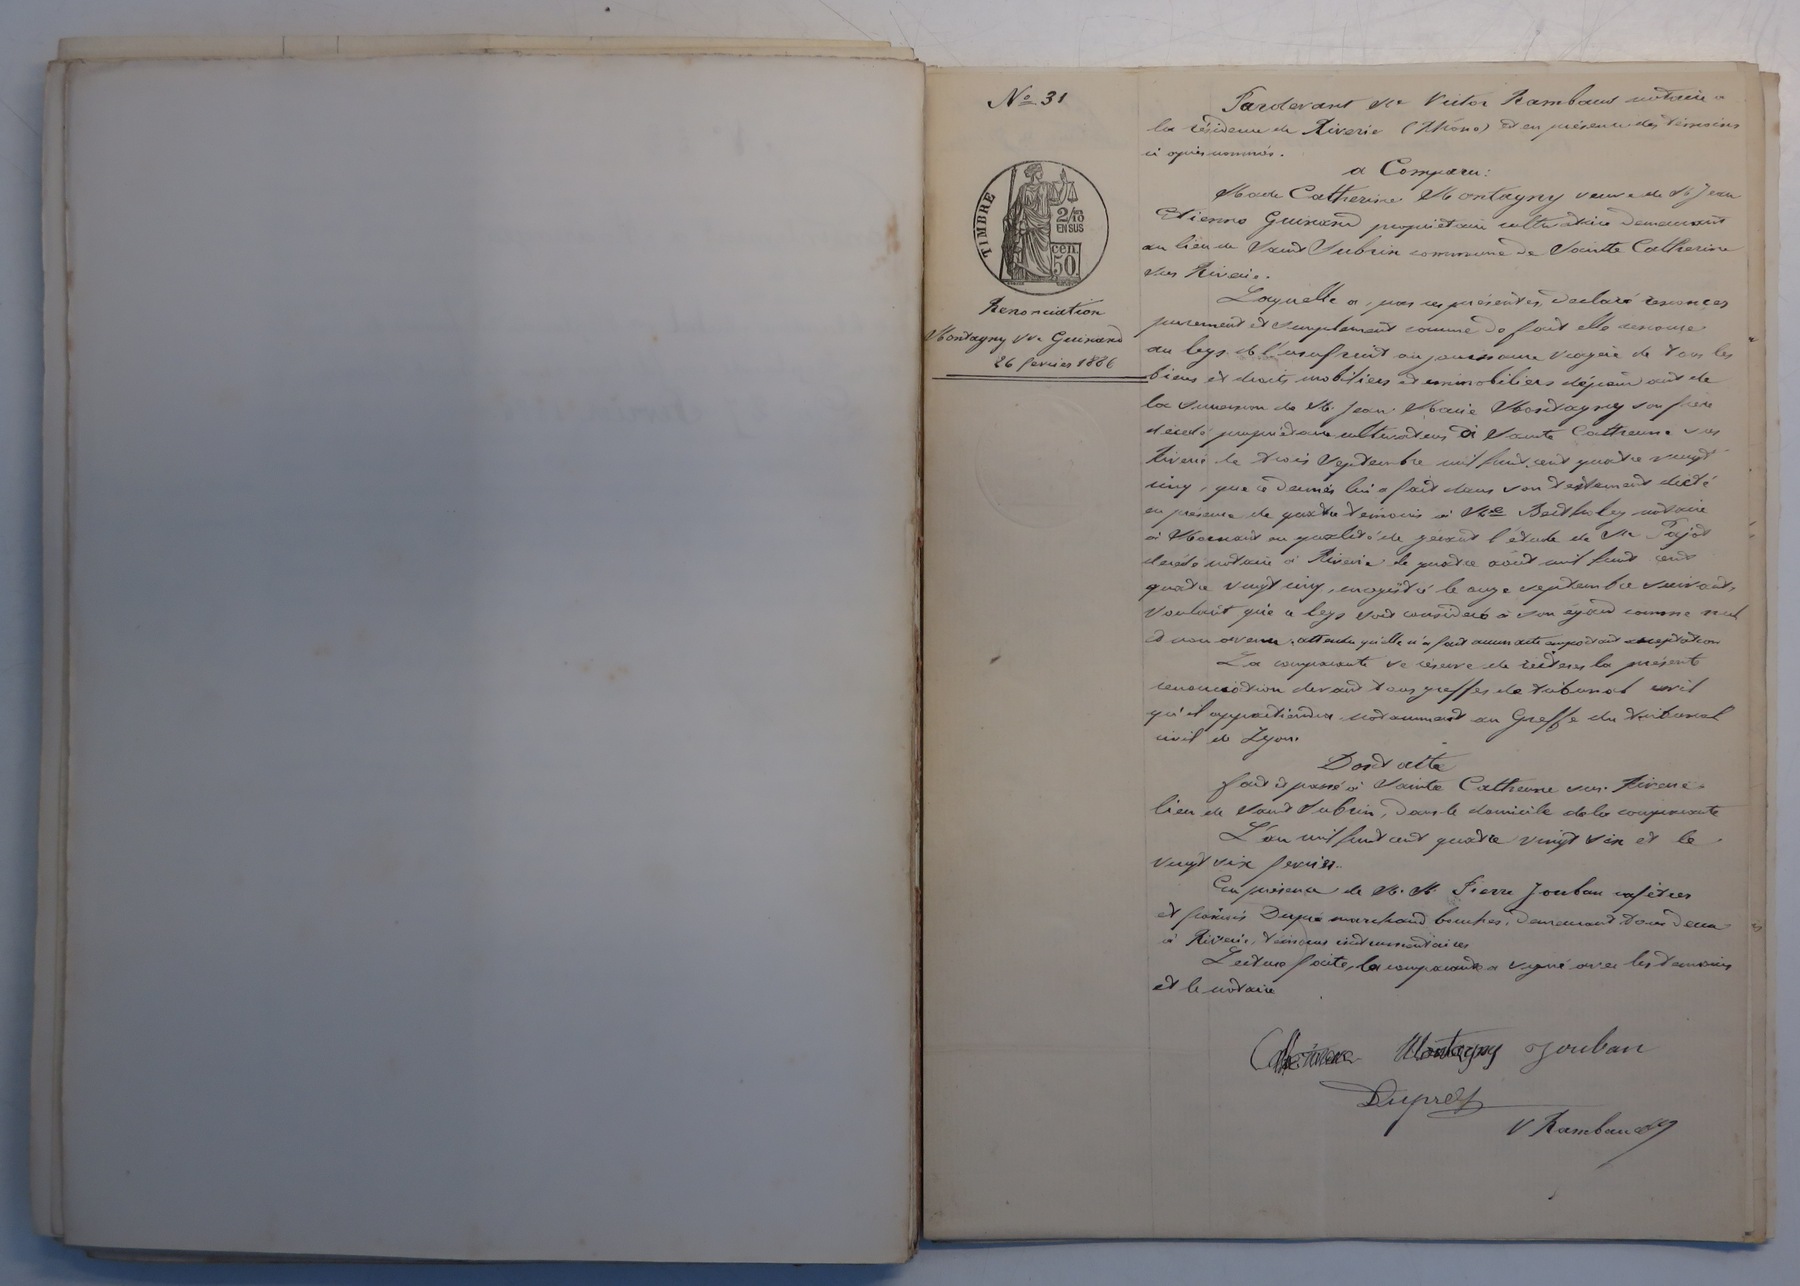 No 31
TIMBRE
2/10
EN SUS
cen.
50
Renonciation
Montagny vve Guinand
26 février 1886
Pardevant Me Victor Rambaud notaire à
la résidence de Riverie (Rhône) et en présence des témoins
ci après nommés.
a Comparu:
Made Catherine Montagny veuve de M. Jean
Etienne Guinand propriétaire cultivatrice demeurant
au lieu de Saint Subrin commune de Sainte Catherine
sur Riverie.
Laquelle a, par ces présentes, déclaré renoncer
purement et simplement comme de fait elle renonce
au legs de l'usufruit ou jouissance viagère de tous les
biens et droits mobiliers et immobiliers dépendant de
la succession de M. Jean Marie Montagny son frère
décédé propriétaire cultivateur à Sainte Catherine sur
Riverie le trois septembre mil huit cent quatre vingt
cinq, que ce dernier lui a fait dans son testament dicté
en présence de quatre témoins à Me Bertholey notaire
à Mornant en qualité de gérant l'étude de Me Pujot
décédé notaire à Riverie le quatre août mil huit cent
quatre vingt cinq, enregistré le onze septembre suivant,
voulant que ce legs soit considéré à son égard comme nul
et non avenu, attendu qu'elle n'a fait aucun acte emportant acceptation
La comparante se réserve de réitérer la présente
renonciation devant tous greffes de tribunal civil
qu'il appartiendra notamment au Greffe du tribunal
civil de Lyon.
Dont acte
fait et passé à Sainte Catherine sur Riverie
lieu de Saint Subrin, dans le domicile de la comparante
L'an mil huit cent quatre vingt six et le
vingt six février.
En présence de M. M. Pierre Jouban cafetier
et francis Dupré marchand boucher, demeurant tous deux
à Riverie, témoins instrumentaires
Lecture faite, la comparante a signé avec les témoins
et le notaire
Catherine Montagny Jouban
Dupré
V Rambaud